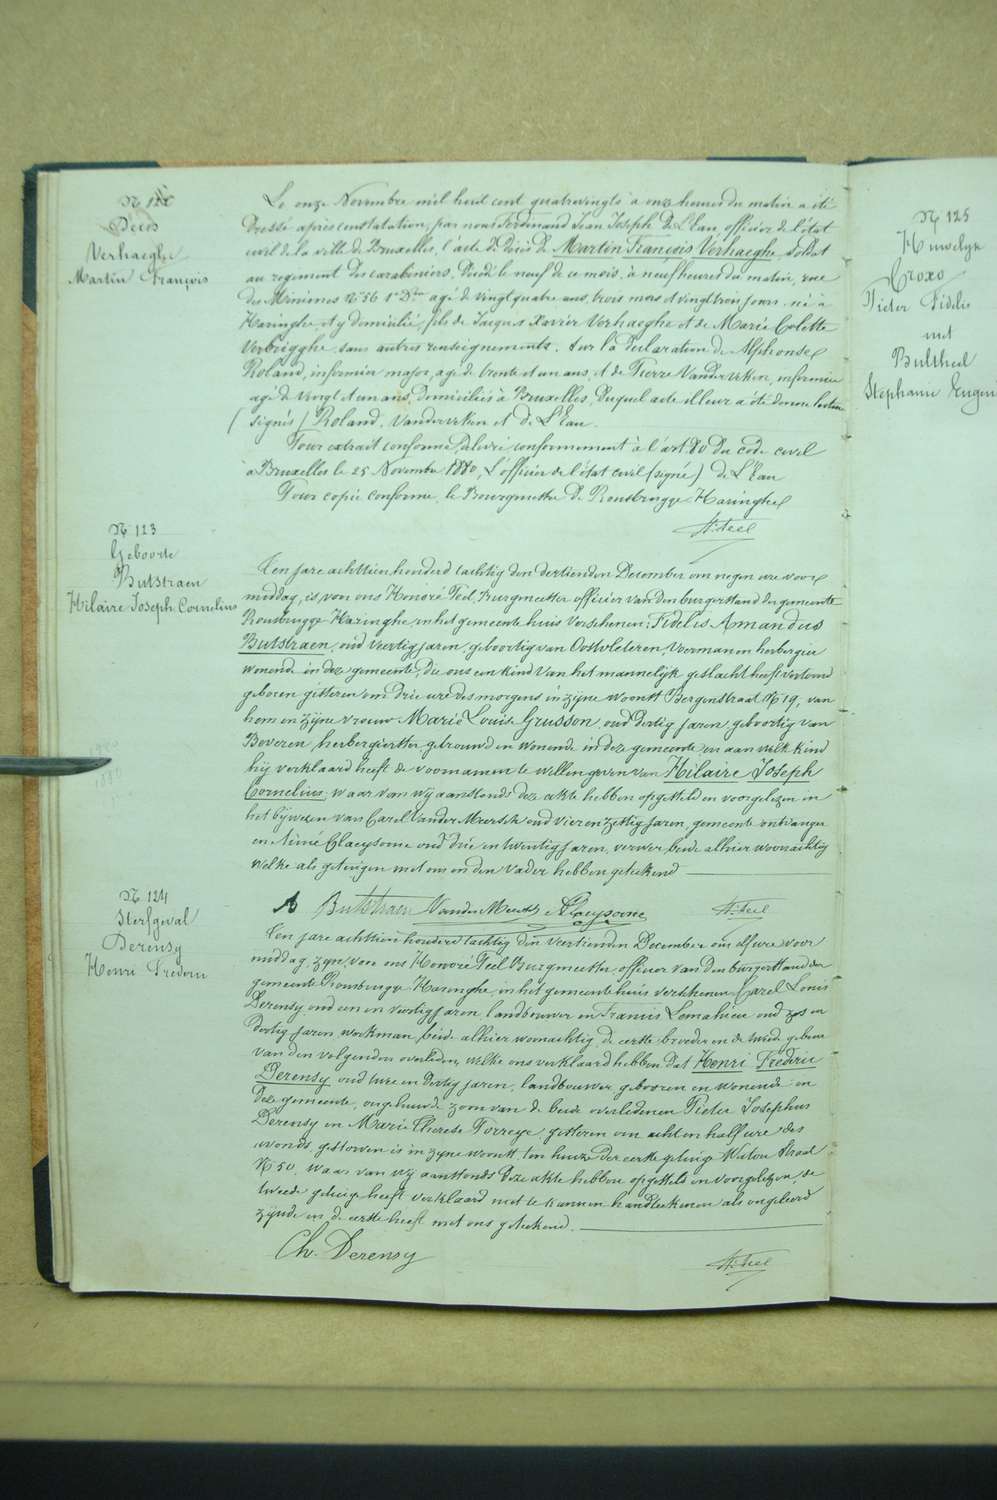 Décès
Verhaeghe
Martin François
Le onze Novembre mil huit cent quatrevingts à onze heures du matin a été
Dressé après constatation, par nous Ferdinand Jean Joseph De L'Eau officier de l'état
civil de la ville de Bruxelles, l'acte de décès de Martin François Verhaeghe, soldat
au regiment des carabiniers, Décédé le neuf de ce mois, à neuf heures du matin, rue
des Minimes N° 56 1e Don agé de vingt quatre ans, trois mois et vingt trois jours né à
Haringhe et y domicilié, fils de Jacques Xavier Verhaeghe et de Marie Colette
Verbrigghe sans autres renseignements. Sur la déclaration de Alphonse
Roland, infirmier major, agé de trente et un ans, et de Pierre Vanderveken, infirmier
agé de vingt et un ans, Domiciliés à Bruxelles. Duquel acte il leur a été donné lecture
(Signés) Roland, Vanderveken et de L'Eau.
Pour extrait conforme, délivré conformement à l'art. 80 du code civil
à Bruxelles le 25 Novembre 1880, L'officier de l'état civil (signé) de L'Eau
Pour copie conforme, le Bourgmestre de Rousbrugge Haringhe
H. Teel
N° 123
Geboorte
Butstraen
Hilaire Joseph Cornelius
Ten jare achttien honderd tachtig den dertienden December om negen ure voor
middag, is, voor ons Honoré Teel, Burgmeester officier van den burgerstand der gemeente
Rousbrugge Haringhe in het gemeente huis Verschenen: Fidelis Amandus
Butstraen, oud veertig jaren, geboortig van Oostvleteren, Voerman en herbergier
wonende in deze gemeente, die ons een kind van het mannelijk geslacht heeft vertoond
geboren gisteren om drie ure des morgens in zijne woonst Bergenstraat N° 19, van
hem en zijne vrouw Marie Louise Grusson oud dertig jaren, geboortig van
Beveren herbergierster, getrouwd en wonende in deze gemeente, en aan welk kind
hij verklaard heeft de voornamen te willen geven van Hilaire Joseph
Cornelius, waar van wij aanstonds deze akte hebben opgesteld en voorgelezen in
het bijwezen van Carel Vander Meersch oud vier en zestig jaren, gemeente ontvanger
en Aimé Claeysoone oud drie en twintig jaren, verwer beide alhier woonachtig
Welke als getuigen met ons en den vader hebben geteekend
A Butstraen VanderMeersch A Claeysoone H. Teel
N° 124
Sterfgeval
Derensy
Henri Frederic
Ten jare achttien honderd tachtig den veertienden December om elf ure voor
middag, zijn, voor ons Honoré Teel Burgmeester, officier van den burgerstand der
gemeente Rousbrugge Haringhe, in het gemeentehuis verschenen Carel Louis
Derensy oud een en veertig jaren, landbouwer en Francis Lemahieu oud zes en
dertig jaren, werkman, beide alhier woonachtig, de eerste broeder en de tweede gebuur
van den volgenden overleden, welke ons verklaard hebben dat Henri Frederic
Derensy oud twee en dertig jaren, landbouwer, geboren en wonende in
deze gemeente, ongehuwde zoon van de beide overledenen Pieter Josephus
Derensy en Marie Therese Torreye, gisteren om acht en half ure des
avonds gestorven is in zijne woonst ten huize der eerste getuige Watou Straat
N° 50, waar van wij aanstonds deze akte hebben opgesteld en voorgelezen, de
tweede getuige heeft verklaard niet te kunnen handteekenen als ongeleerd
zijnde en de eerste heeft met ons geteekend.
Ch. Derensy H. Teel
N° 125
Huwelijk
Croxo
Pieter Fidelis
met
Bultheel
Stephanie Eugen